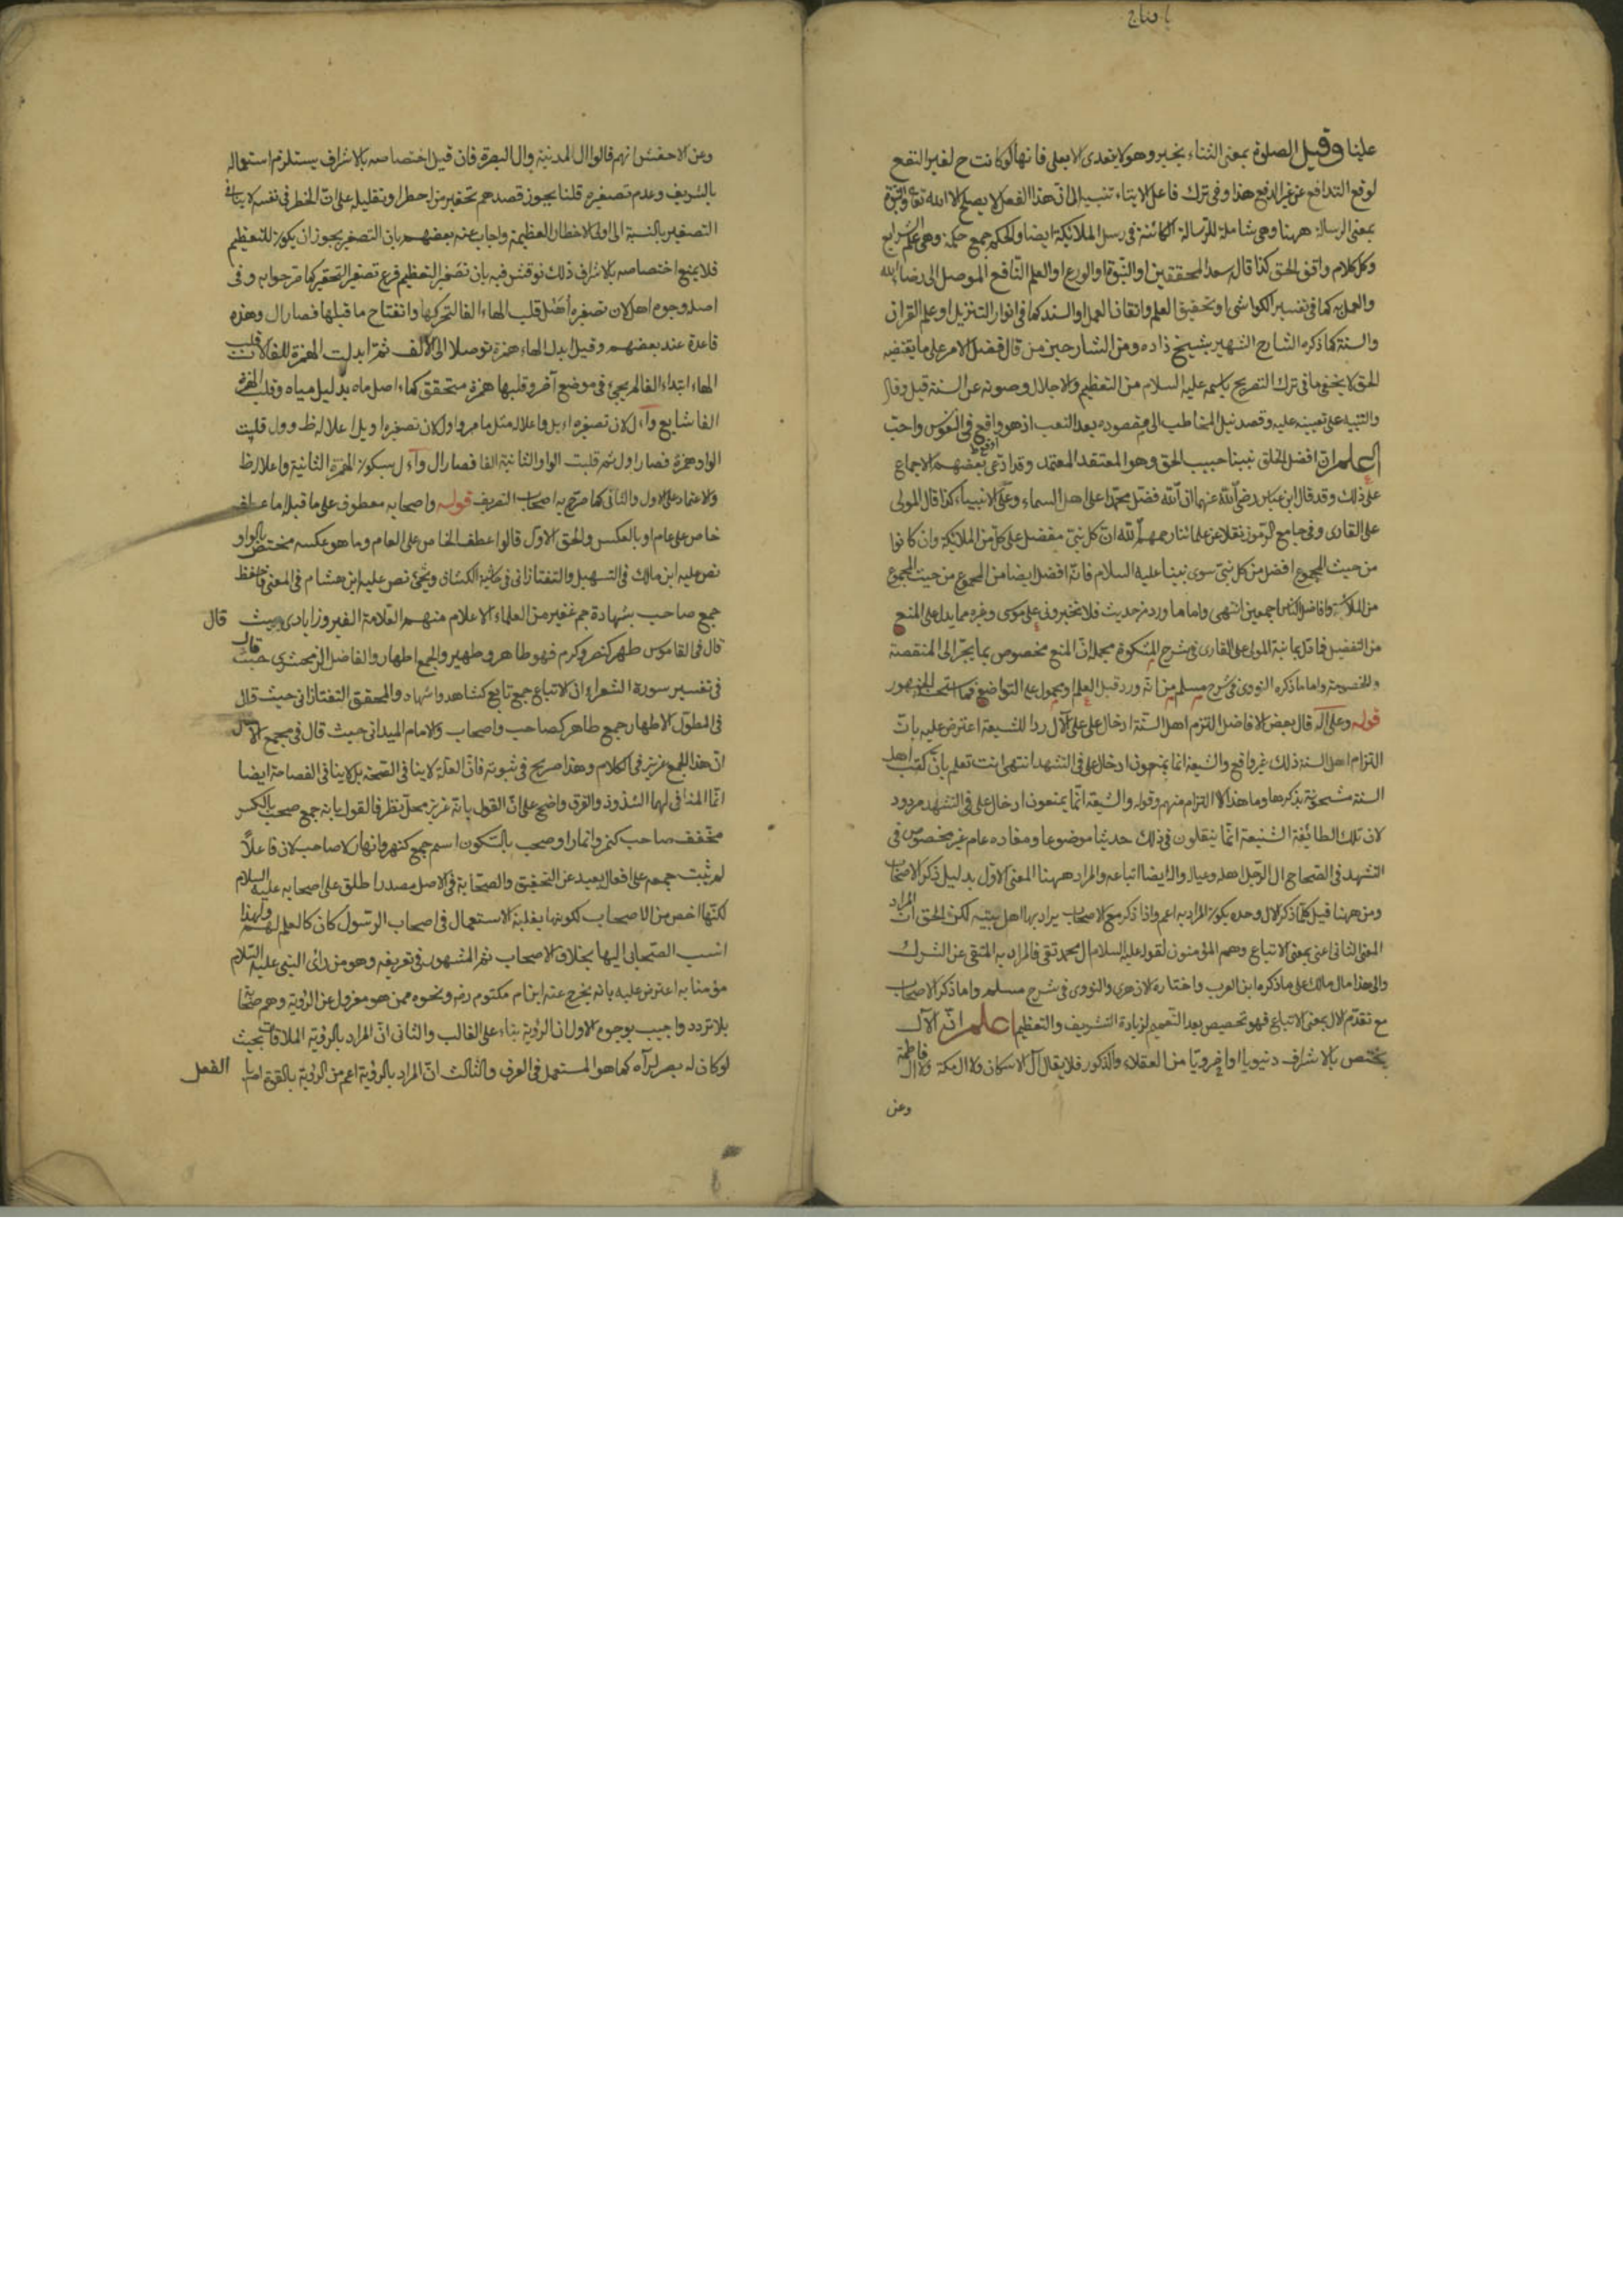 يا فتاح
علينا وقيل الصلوة بمعنى الثناء بخير وهو لا يتعدى الا بعلى فانها لو كانت ح لغير النفع
لوقع التدافع عن غير الدفع هذا وفى ترك فاعل الايتاء تنبيه الى ان هذا الفعل لا يصلح الا لله تعالى والنبوة
بمعنى الرسالة ههنا وهى شاملة للرسالة الكائنة فى رسل الملائكة ايضا والحكم جمع حكمة وهى علم الشرايع
وكل كلام وافق الحق كذا قال سعد المحققين او النبوة او الورع او العلم النافع الموصل الى رضاء الله
والعمل به كما فى تفسير الكواشى او تحقيق العلم واتقان العمل او السند كما فى انوار التنزيل او علم القرآن
والسنة كما ذكره الشارح الشهير بشيخ زاده ومن الشارحين من قال فضل الامر على ما يقتضيه
الحق لا يخفى ما فى ترك التصريح باسمه عليه السلام من التعظيم والاجلال وصونه عن السنة قيل وقال
والتنبيه على تعيينه عليه وقصد نيل المخاطب الى مقصوده بعد التعب اذ هو واقع فى النفوس واحب
اعلم ان افضل الخلق نبينا حبيب الحق وهو المعتقد المعتمد وقد ادعى بعضهم الاجماع
على ذلك وقد قال ابن عباس رضى الله عنهما ان الله فضل محمدا على اهل السماء وعلى الانبياء كذا قال المولى
على القارى وفى جامع الرموز نقلا عن علمائنا رحمهم الله ان كل نبى مفضل على كل من الملائكة وان كانوا
من حيث المجموع افضل من كل نبى سوى نبينا عليه السلام فانه افضل ايضا من المجموع من حيث المجموع
من الملائكة وافاضل الناس اجمعين انتهى واما ما ورد من حديث فلا تخيرونى على موسى وغيره مما يدل على المنع
من التفضيل فما قال بمانيه المولى على القارى فى شرح المشكوة مجمله ان المنع مخصوص بما يجر الى المنقصة
والخصومة واما ما ذكره النووى فى شرح مسلم من انه ورد قبل العلم او محمول على التواضع
قوله وعلى آله قال بعض الافاضل التزم اهل السنة ادخال على على الآل ردا للشيعة اعترض عليه بان
التزام اهل السنة ذلك غير واقع والشيعة انما يمنعون ادخال على فى التشهد انتهى انت تعلم بان كتب اهل
السنة مشحونة بذكرها وما هذا الا التزام منهم وقوله والشيعة انما يمنعون ادخال على فى التشهد مردود
لان تلك الطائفة الشنيعة انما ينقلون فى ذلك حديثا موضوعا ومفاده عام غير مخصوص فى
التشهد فى الصحاح ال الرجل اهله وعياله واله ايضا اتباعه والمراد ههنا المعنى الاول بدليل ذكر الاصحاب
ومن ههنا قيل كلما ذكر الال وحده يكون المراد به اعم واذا ذكر مع الاصحاب يراد بها اهل بيته لكن الحق ان المراد
المعنى الثانى اعنى بمعنى الاتباع وهم المؤمنون لقوله عليه السلام ال محمد تقى فالمراد به المتقى عن الشرك
والى هذا مال مالك على ما ذكره ابن العرب واختاره الازهرى والنووى فى شرح مسلم واما ذكر الاصحاب
مع تقدم الال بمعنى الاتباع فهو تخصيص بعد التعميم لزيادة التشريف والتعظيم اعلم انه الآل
يختص بالاشراف دنيويا او اخرويا من العقلاء والذكور فلا يقال آل الاسكاف ولا ال مكة ولا ال فاطمة
وعن
وعن الاخفش انهم قالوا ال المدينة وال البصرة فان قيل اختصاصه بالاشراف يستلزم استعماله
بالشريف وعدم تصغيره قلنا يجوز قصدهم تحقير من له خطر او تقليله على ان الخطر فى نفسه لا ينافى
التصغير بالنسبة الى اولى الاخطار العظيمة واجاب عنه بعضهم بان التصغير يجوز ان يكون للتعظيم
فلا يمنع اختصاصه بالاشراف ذلك نوقش فيه بان تصغير التعظيم فرع تصغير التحقير كما مر جوابه وفى
اصله وجوه اهل لان تصغيره أهيل قلب الهاء الفا لتحركها وانفتاح ما قبلها فصار ال وهذه
قاعدة عند بعضهم وقيل ابدل الهاء همزة توصلا الى الالف ثم ابدلت الهمزة الفا لان قلب
الهاء ابتداء الفا لم يجئ فى موضع آخر وقلبها همزة متحقق كماء اصل ماه بدليل مياه وقلب الهمزة
الفا شايع وأءل لان تصغيره اءيل واعلاله مثل ما مر واول لان تصغيره اويل اعلاله ظ وول قلبت
الواو همزة فصار اول ثم قلبت الواو الثانية الفا فصار ال وأءل بسكون الهمزة الثانية واعلاله ظ
والاعتماد على الاول والثانى كما صرح به اصحاب التصريف قوله واصحابه معطوف على ما قبله اما عطف
خاص على عام او بالعكس والحق الاول قالوا عطف الخاص على العام وما هو عكسه مختص بالواو
نص عليه ابن مالك فى التسهيل والتفتازانى فى حاشية الكشاف ونص عليه ابن هشام فى المغنى فاحفظ
جمع صاحب بشهادة جم غفير من العلماء الاعلام منهم العلامة الفيروزابادى حيث قال
قال فى القاموس طهر كنصر وكرم فهو طاهر وطهير والجمع اطهار والفاضل الزمخشرى حيث قال
فى تفسير سورة الشعراء ان الاتباع جمع تابع كشاهد واشهاد والمحقق التفتازانى حيث قال
فى المطول الاطهار جمع طاهر كصاحب واصحاب والامام الميدانى حيث قال فى مجمع الامثال
ان هذا الجمع عزيز فى الكلام وهذا صريح فى ثبوته فان العلة لا ينافى الصحة بل لا ينافى الفصاحة ايضا
انما المنافى لهما الشذوذ والفرق واضح على ان القول بانه عزيز محل نظر فالقول بانه جمع صحب بالكسر
مخفف صاحب كنمر وانمار او صحب بالسكون اسم جمع كنهر وانهار لا صاحب لان فاعلا
لم يثبت جمعه على افعال بعيد عن التحقيق والصحابة فى الاصل مصدر اطلق على اصحابه عليه السلام
لكنها اخص من الاصحاب لكونها بغلبة الاستعمال فى اصحاب الرسول كان كالعلم لهم ولهذا
انسب الصحابى اليها بخلاف الاصحاب ثم المشهور فى تعريفه وهو من رأى النبى عليه السلام
مؤمنا به اعترض عليه بانه يخرج عنه ابن ام مكتوم رضه ونحوه ممن هو معزول عن الرؤية وهم صحابة
بلا تردد واجيب بوجوه الاول ان الرؤية بناء على الغالب والثانى ان المراد بالرؤية الملاقات بحيث
لو كان له بصر لرآه كما هو المستعمل فى العرف والثالث ان المراد بالرؤية اعم من الرؤية بالقوة او
الفعل